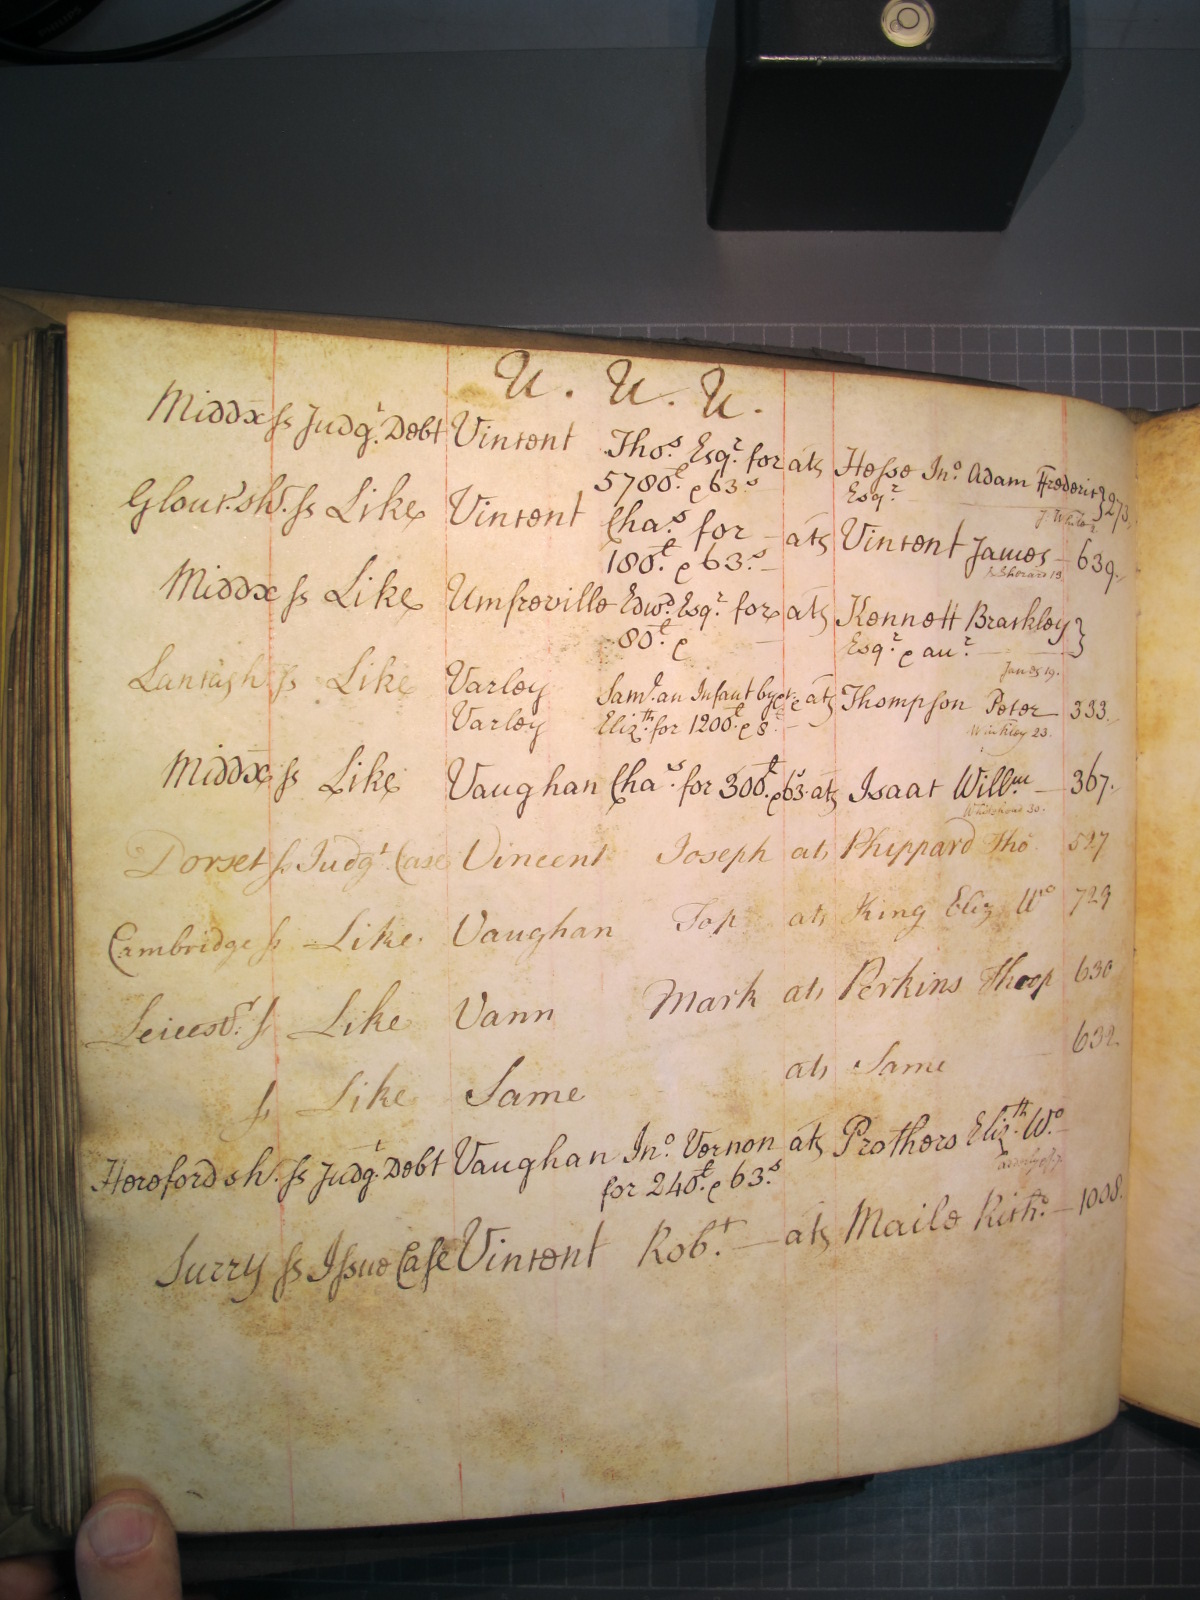 U. U. U.
Middx ss Judgt. Debt Vincent Thos. Esqr. for ats Hesse Jno. Adam Frederic } 273.
5780£. & 63s Esqr.
Gloucr.sh. ss Like Vincent Chas. for ats Vincent James 639.
180£. & 63s.
Middx ss Like Umfreville Edwd. Esqr. for ats Kennett Brackley }
80£. & Esqr. & anr.
James 19.
Lancash ss Like Varley Saml. an Infant by ats Thompson Peter 333.
Varley Elizth. for 1200£. & 8 Winkley 23.
Middx ss Like Vaughan Chas. for 300£. & 63s. ats Isaac Willm 367.
Whitehouse 30.
Dorset ss Judgt. Case Vincent Joseph ats Phippard Tho 527
Cambridge ss Like. Vaughan Top ats King Eliz Wo 729
Leicestr. ss Like Vann Mark ats Perkins Thoop 630
ss Like Same ats Same 632
Herefordsh. ss Judgt. Debt Vaughan Jno. Vernon ats Prothero Elizth. Wo.
for 240£. & 63s.
Surry ss Issue Case Vincent Robt. ats Maile Richd. 1008.